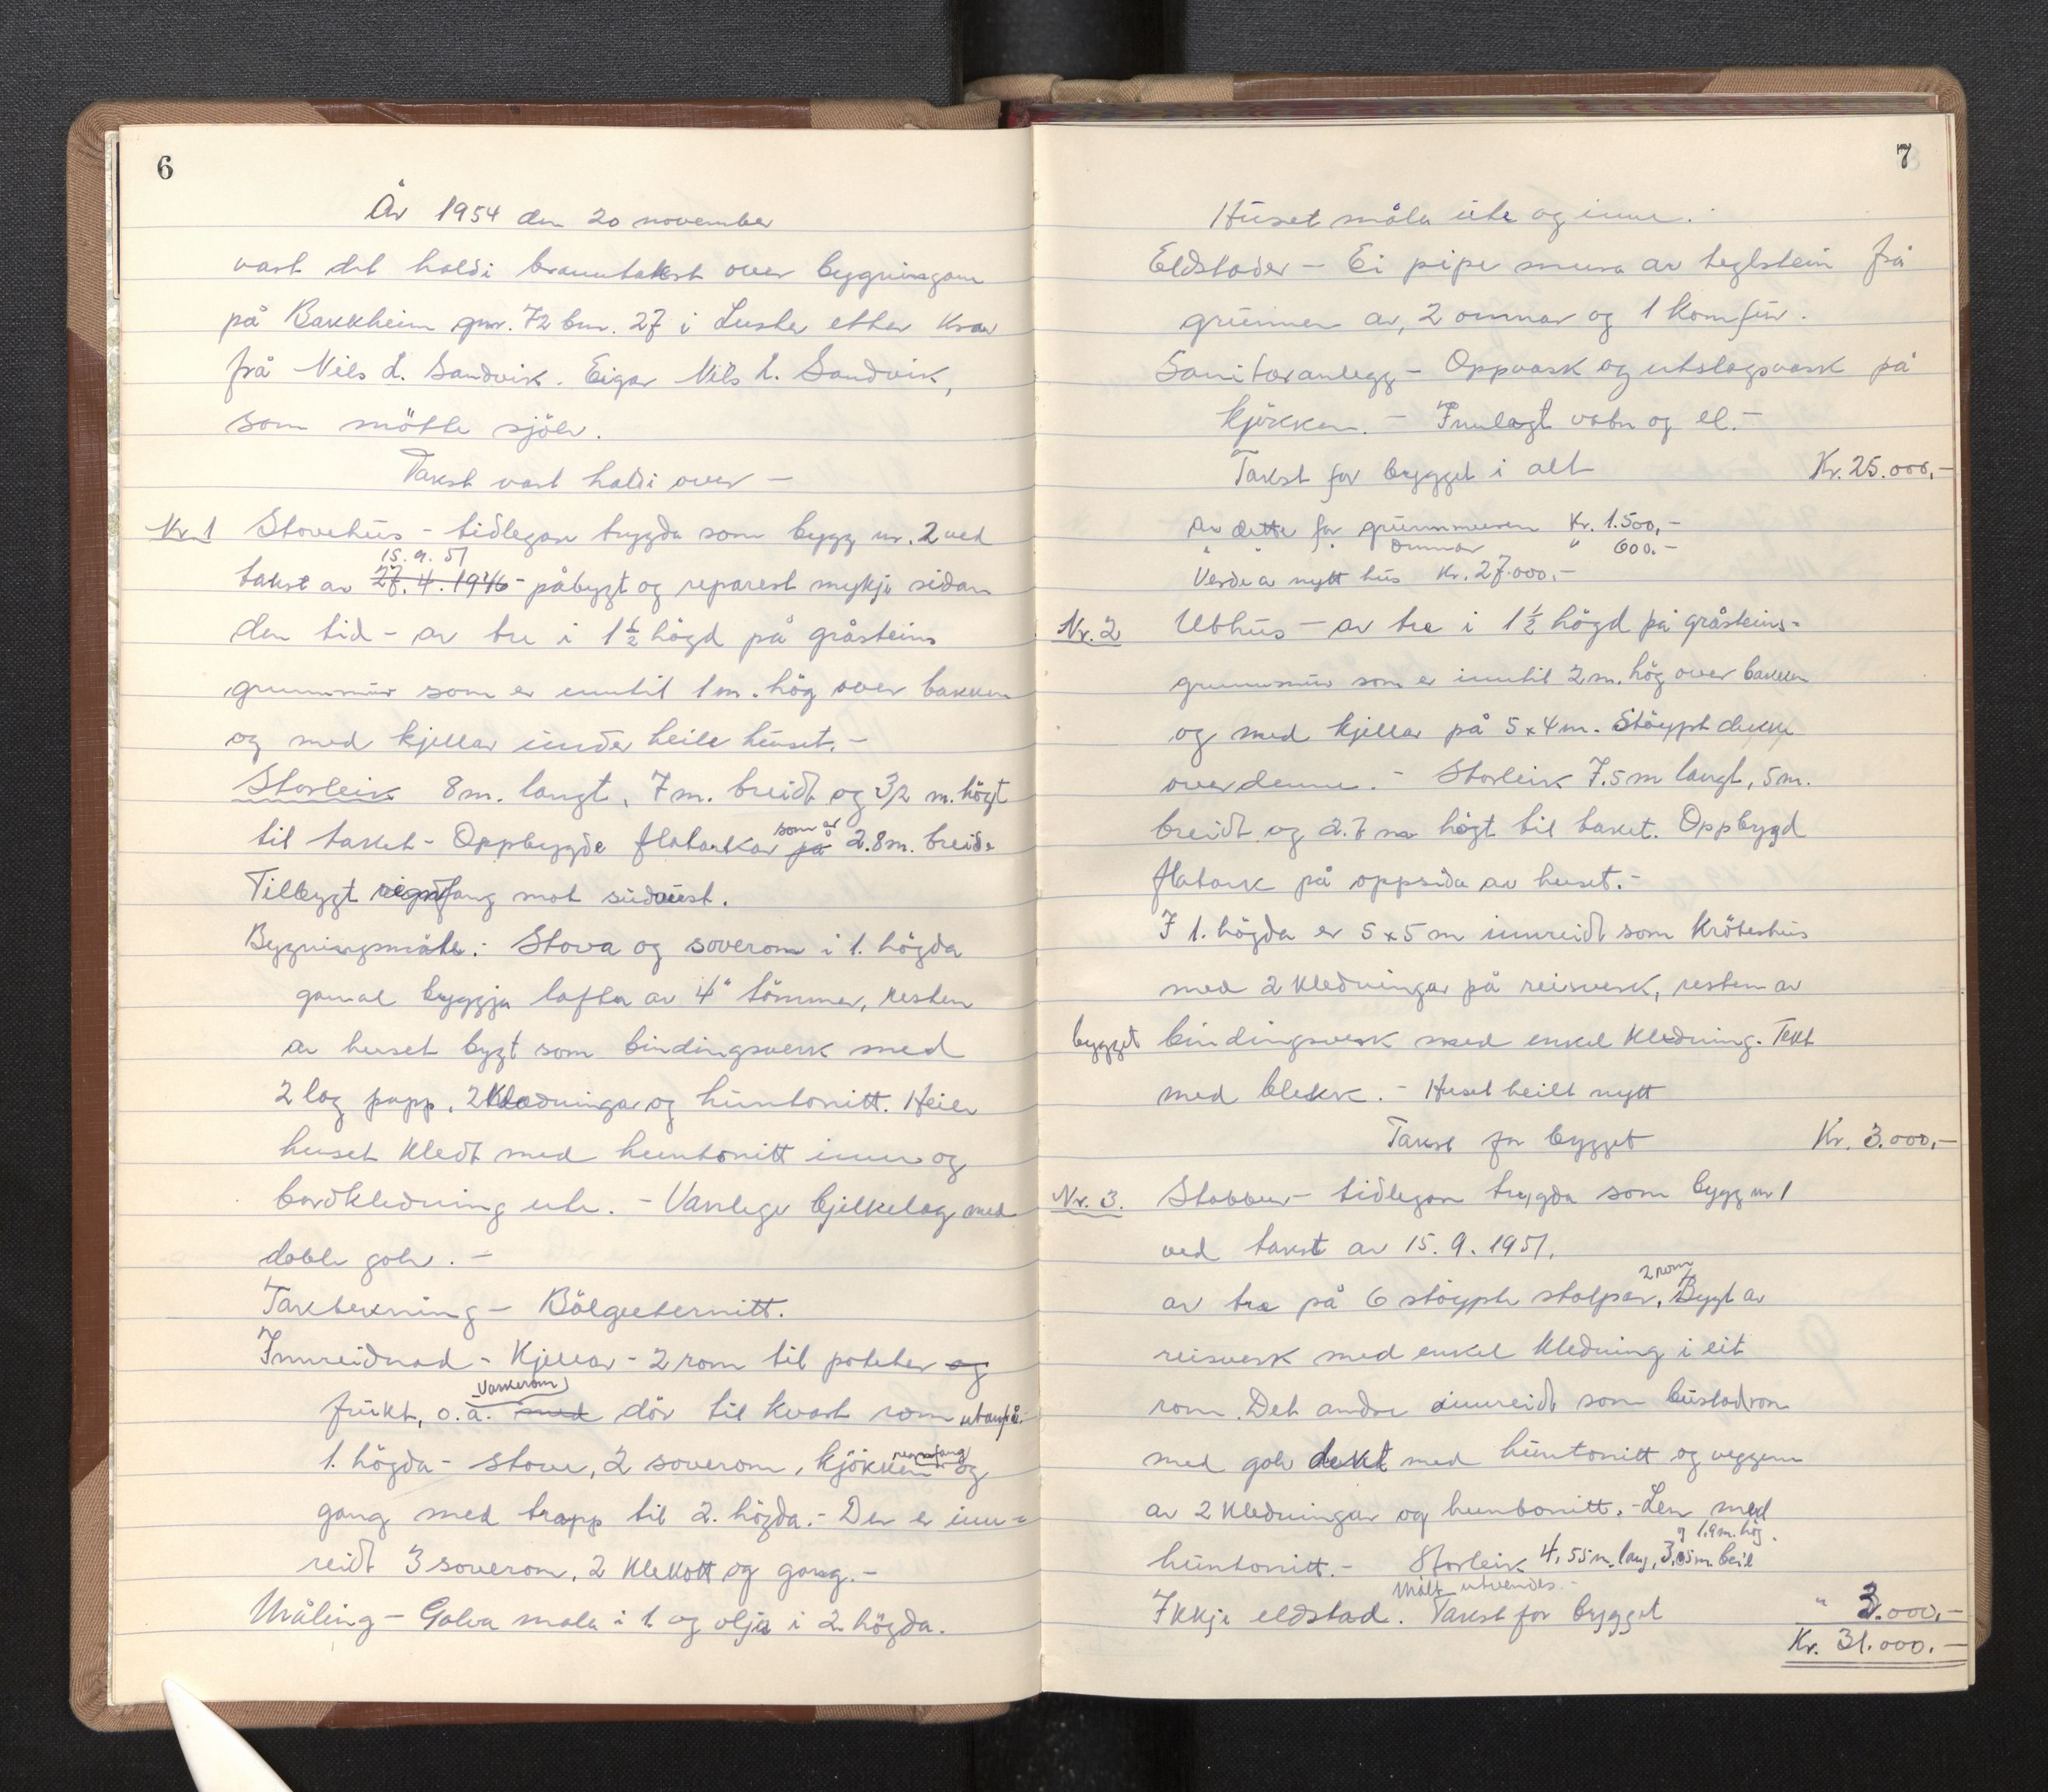 6
År 1954 den 20 november
vart det haldi branntakst over bygningane
på Bakkheim gnr. 72 bnr. 27 i Luster etter krav
frå Nils L. Sandvik. Eigar Nils L. Sandvik,
som møtte sjölv.
Takst vart haldi over —
Nr. 1 Stovehus - tidlegare trygda som bygg nr. 2 ved
15. 9. 51
takst av 27. 4. 1946 - påbygt og reparert mykje sidan
den tid - av tre i 1½ högd på gråsteins
grunnmur som er inntil 1 m. hög over bakken
og med kjellar under heile huset. -
Storleik 8 m. langt, 7 m. breidt og 3½ m. högt
som er
til taket - Oppbygde flatarkar på 2.8 m. breide
Tillbygt vindfang mot sudaust.
Bygningsmåte: Stova og soverom i 1. högda
gamal byggja lafta av 4" tömmer, resten
av huset bygt som bindingsverk med
2 lag papp, 2 kledningar og huntonitt. Heile
huset kledt med huntonitt inne og
bordkledning ute. - Vanlege bjelkelag med
doble golv. -
Taktekning - Bölgeeternitt.
Innreidnad - Kjellar - 2 rom til poteter og
Vaskerom
frukt, o.a. med dör til kvart rom utanfrå. -
1. högda - stove, 2 soverom, kjökken og
gang med trapp til 2. högda. - Der er inn-
reidt 3 soverom, 2 klekott og gang. -
Måling - Golva mala i 1. og olja i 2. högda.
7
Huset måla ute og inne.
Eldstader - Ei pipe mura av teglstein frå
grunnen av, 2 omnar og 1 komfur.
Sanitæranlegg - Oppvask og utslagsvask på
kjökken. - Innlagt vatn og el. -
Takst for bygget i alt Kr. 25.000,-
Av dette for grunnmuren Kr. 1.500,-
" " " omnar " 600.-
Verde a nytt hus Kr. 27.000,-
Nr. 2 Uthus - av tre i 1½ högd på gråsteins-
grunnmur som er inntil 2 m. hög over bakken
og med kjellar på 5 x 4 m. Stöypt dekke
over denne. - Storleik 7.5 m langt, 5 m.
breidt og 2.7 m högt til taket. Oppbygd
flatark på oppsida av huset. -
I 1. högda er 5 x 5 m innreidt som kröterhus
med 2 kledningar på reisverk, resten av
bygget bindingsverk med enkel kledning. Tekt
med blekk. - Huset heilt nytt
Takst for bygget Kr. 3.000,-
Nr. 3. Stabbur - tidlegare trygda som bygg nr 1
ved takst av 15. 9. 1951.
2 rom
av tre på 6 stöypte stolpar. Bygt av
reisverk med enkel kledning i eit
rom. Det andre innreidt som bustadrom
med golv dekt med huntonitt og veggene
av 2 kledningar og huntonitt. - Lem med
og 1.9 m. hög.
huntonitt. - Storleik 4,55 m. lang, 3.05 m. beit
Målt utvendes. -
Ikkje eldstad. Takst for bygget " 3.000,-
Kr. 31.000.-